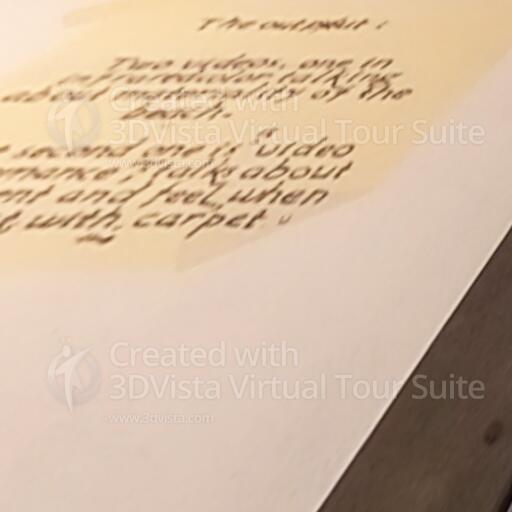 The output:
Two videos, one in
infraredcolor talking
about materiality of the
beach.
second one is video
talks about
and feel when
with carpet.
Created with
3DVista Virtual Tour Suite
www.3dvista.com
Created with
3DVista Virtual Tour Suite
www.3dvista.com